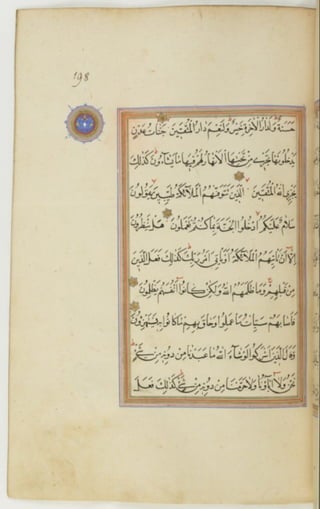 198
حَسَنَةٌ وَلَدَارُ الْآخِرَةِ خَيْرٌ وَلَنِعْمَ دَارُ الْمُتَّقِينَ جَنَّاتُ عَدْنٍ
يَدْخُلُونَهَا تَجْرِي مِنْ تَحْتِهَا الْأَنْهَارُ لَهُمْ فِيهَا مَا يَشَاءُونَ كَذَلِكَ
يَجْزِي اللَّهُ الْمُتَّقِينَ الَّذِينَ تَتَوَفَّاهُمُ الْمَلَائِكَةُ طَيِّبِينَ يَقُولُونَ
سَلَامٌ عَلَيْكُمُ ادْخُلُوا الْجَنَّةَ بِمَا كُنْتُمْ تَعْمَلُونَ هَلْ يَنْظُرُونَ
إِلَّا أَنْ تَأْتِيَهُمُ الْمَلَائِكَةُ أَوْ يَأْتِيَ أَمْرُ رَبِّكَ كَذَلِكَ فَعَلَ الَّذِينَ
مِنْ قَبْلِهِمْ وَمَا ظَلَمَهُمُ اللَّهُ وَلَكِنْ كَانُوا أَنْفُسَهُمْ يَظْلِمُونَ
فَأَصَابَهُمْ سَيِّئَاتُ مَا عَمِلُوا وَحَاقَ بِهِمْ مَا كَانُوا بِهِ يَسْتَهْزِئُونَ
وَقَالَ الَّذِينَ أَشْرَكُوا لَوْ شَاءَ اللَّهُ مَا عَبَدْنَا مِنْ دُونِهِ مِنْ شَيْءٍ
نَحْنُ وَلَا آبَاؤُنَا وَلَا حَرَّمْنَا مِنْ دُونِهِ مِنْ شَيْءٍ كَذَلِكَ فَعَلَ